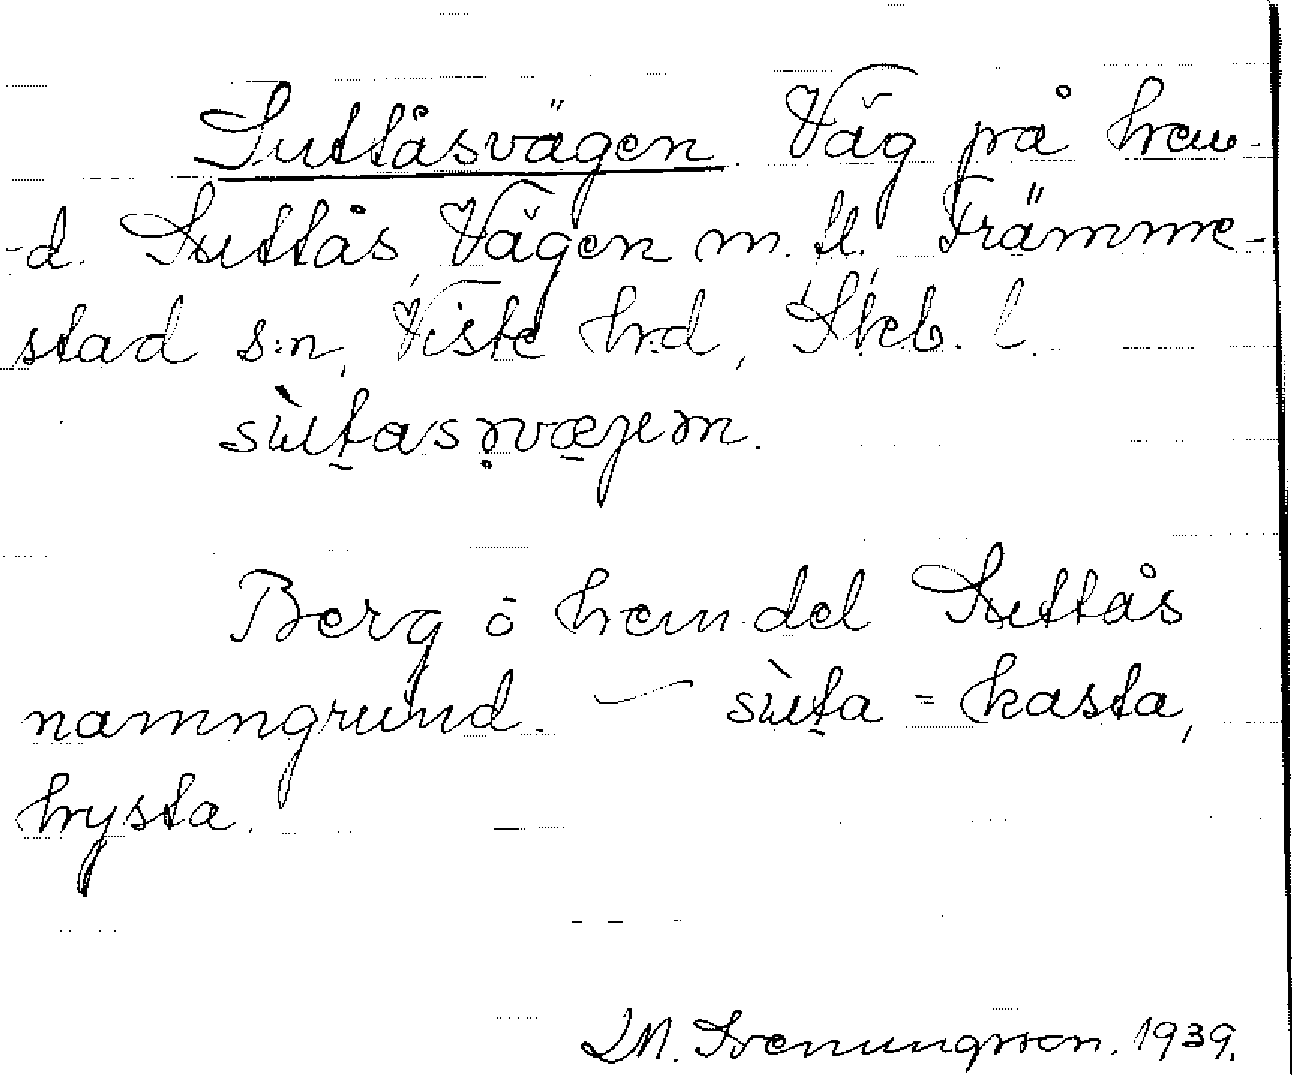 Suttåsvägen. Väg på hem-
-d. Suttås, Vägen m. fl. Främme-
stad s:n, Viste hrd, Skeb. l.
sùtasn̥væjem.
Berg ö hem.del Suttås
namngrund. — sùta = kasta,
hysta.
LM. Svenungsson. 1939.